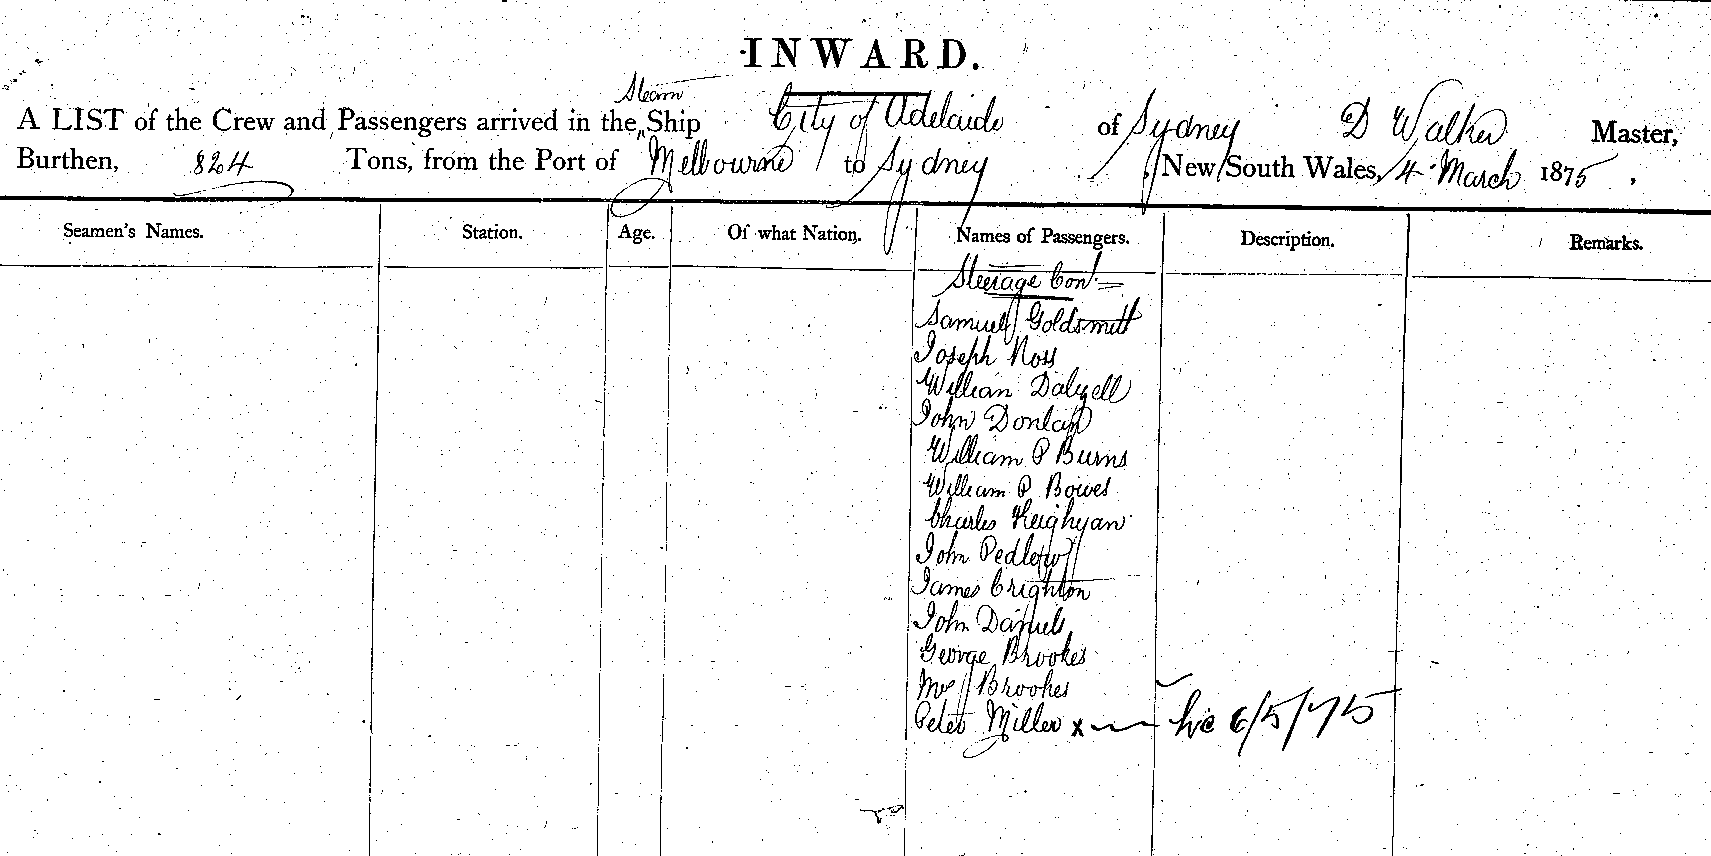 INWARD.
Steam
A LIST of the Crew and Passengers arrived in the „ Ship City of Adelaide of Sydney D Walker Master,
Burthen, 824 Tons, from the Port of Melbourne to Sydney New South Wales, 4 March 1875,
Seamen's Names. Station. Age. Of what Nation. Names of Passengers. Description. Remarks.
Steerage Con
Samuel Goldsmitt
Joseph Ross
William Dalzell
John Donlan
William P Burns
William P Bowes
Charles Keighyan
John Pedlow
James Crighton
John Daniels
George Brookes
Mrs Brookes
Peter Miller x 6/5/75